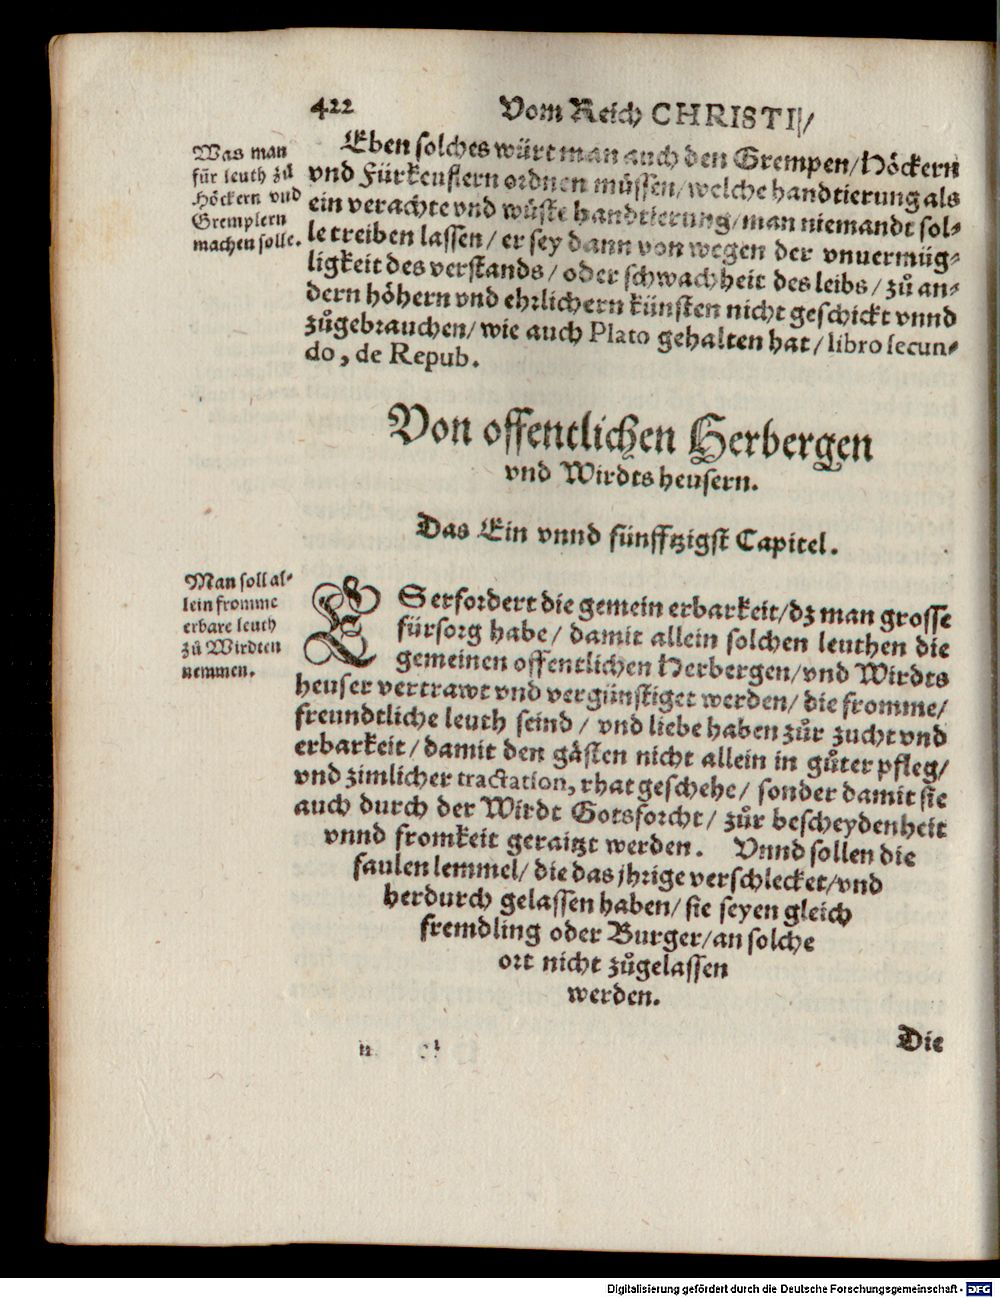 422 Vom Reich CHRISTI/
Was man
für leuth zů
Höckern vnd
Gremplern
machen solle.
Eben solches würt man auch den Grempen/ Höckern
vnd Fürkeuflern ordnen müssen/ welche handtierung als
ein verachte vnd wüste handtierung/ man niemandt sol⸗
le treiben lassen/ er sey dann von wegen der vnuermüg⸗
ligkeit des verstands/ oder schwachheit des leibs/ zů an⸗
dern höhern vnd ehrlichern künsten nicht geschickt vnnd
zůgebrauchen/ wie auch Plato gehalten hat/ libro secun⸗
do, de Repub.
Von offentlichen Herbergen
vnd Wirdts heusern.
Das Ein vnnd fünfftzigst Capitel.
Man soll al⸗
lein fromme
erbare leuth
zů Wirdten
nemmen.
ES erfordert die gemein erbarkeit/ dz man grosse
fürsorg habe/ damit allein solchen leuthen die
gemeinen offentlichen Herbergen/ vnd Wirdts
heuser vertrawt vnd vergünstiget werden/ die fromme/
freundtliche leuth seind/ vnd liebe haben zůr zucht vnd
erbarkeit/ damit den gästen nicht allein in gůter pfleg/
vnd zimlicher tractation, rhat geschehe/ sonder damit sie
auch durch der Wirdt Gotsforcht/ zůr bescheydenheit
vnnd fromkeit geraitzt werden. Vnnd sollen die
faulen lemmel/ die das jhrige verschlecket/ vnd
herdurch gelassen haben/ sie seyen gleich
fremdling oder Burger/ an solche
ort nicht zůgelassen
werden.
Die
Digitalisierung gefördert durch die Deutsche Forschungsgemeinschaft - DFG